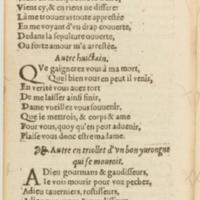 Viens ey, & en riens ne differe
Là me trouueras toute apprestée
En me voyant d'vn drap couuerte,
Dedans la sepulture ouuerte,
Ou forte amour m'a arrestée.
Autre huictain.
QVe gaignerez vous à ma mort,
Quel bien vous en peut il venir,
En verité vous auez tort
De me laisser ainsi finir,
Dame vueillez vous souuenir,
Que ie mettrois, & corps & ame
Pour vous, quoy qu'en peut aduenir,
Plaise vous donc estre ma dame.
Autre en triollet d'vn bon yurongne
qui se mouroit.
ADieu gourmans & gaudisseurs,
Ie vois mourir pour voz pechez,
Adieu tauerniers, rostisseurs,